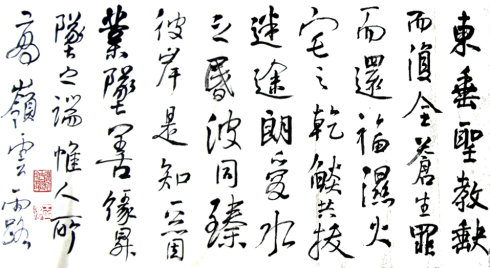 東垂聖教缺
而復全蒼生罪
而還福濕火
宅之乾焰共拔
迷途朗愛水
之昏波同臻
彼岸是知惡因
業墜善緣昇
墜之端惟人所
高嶺雲露